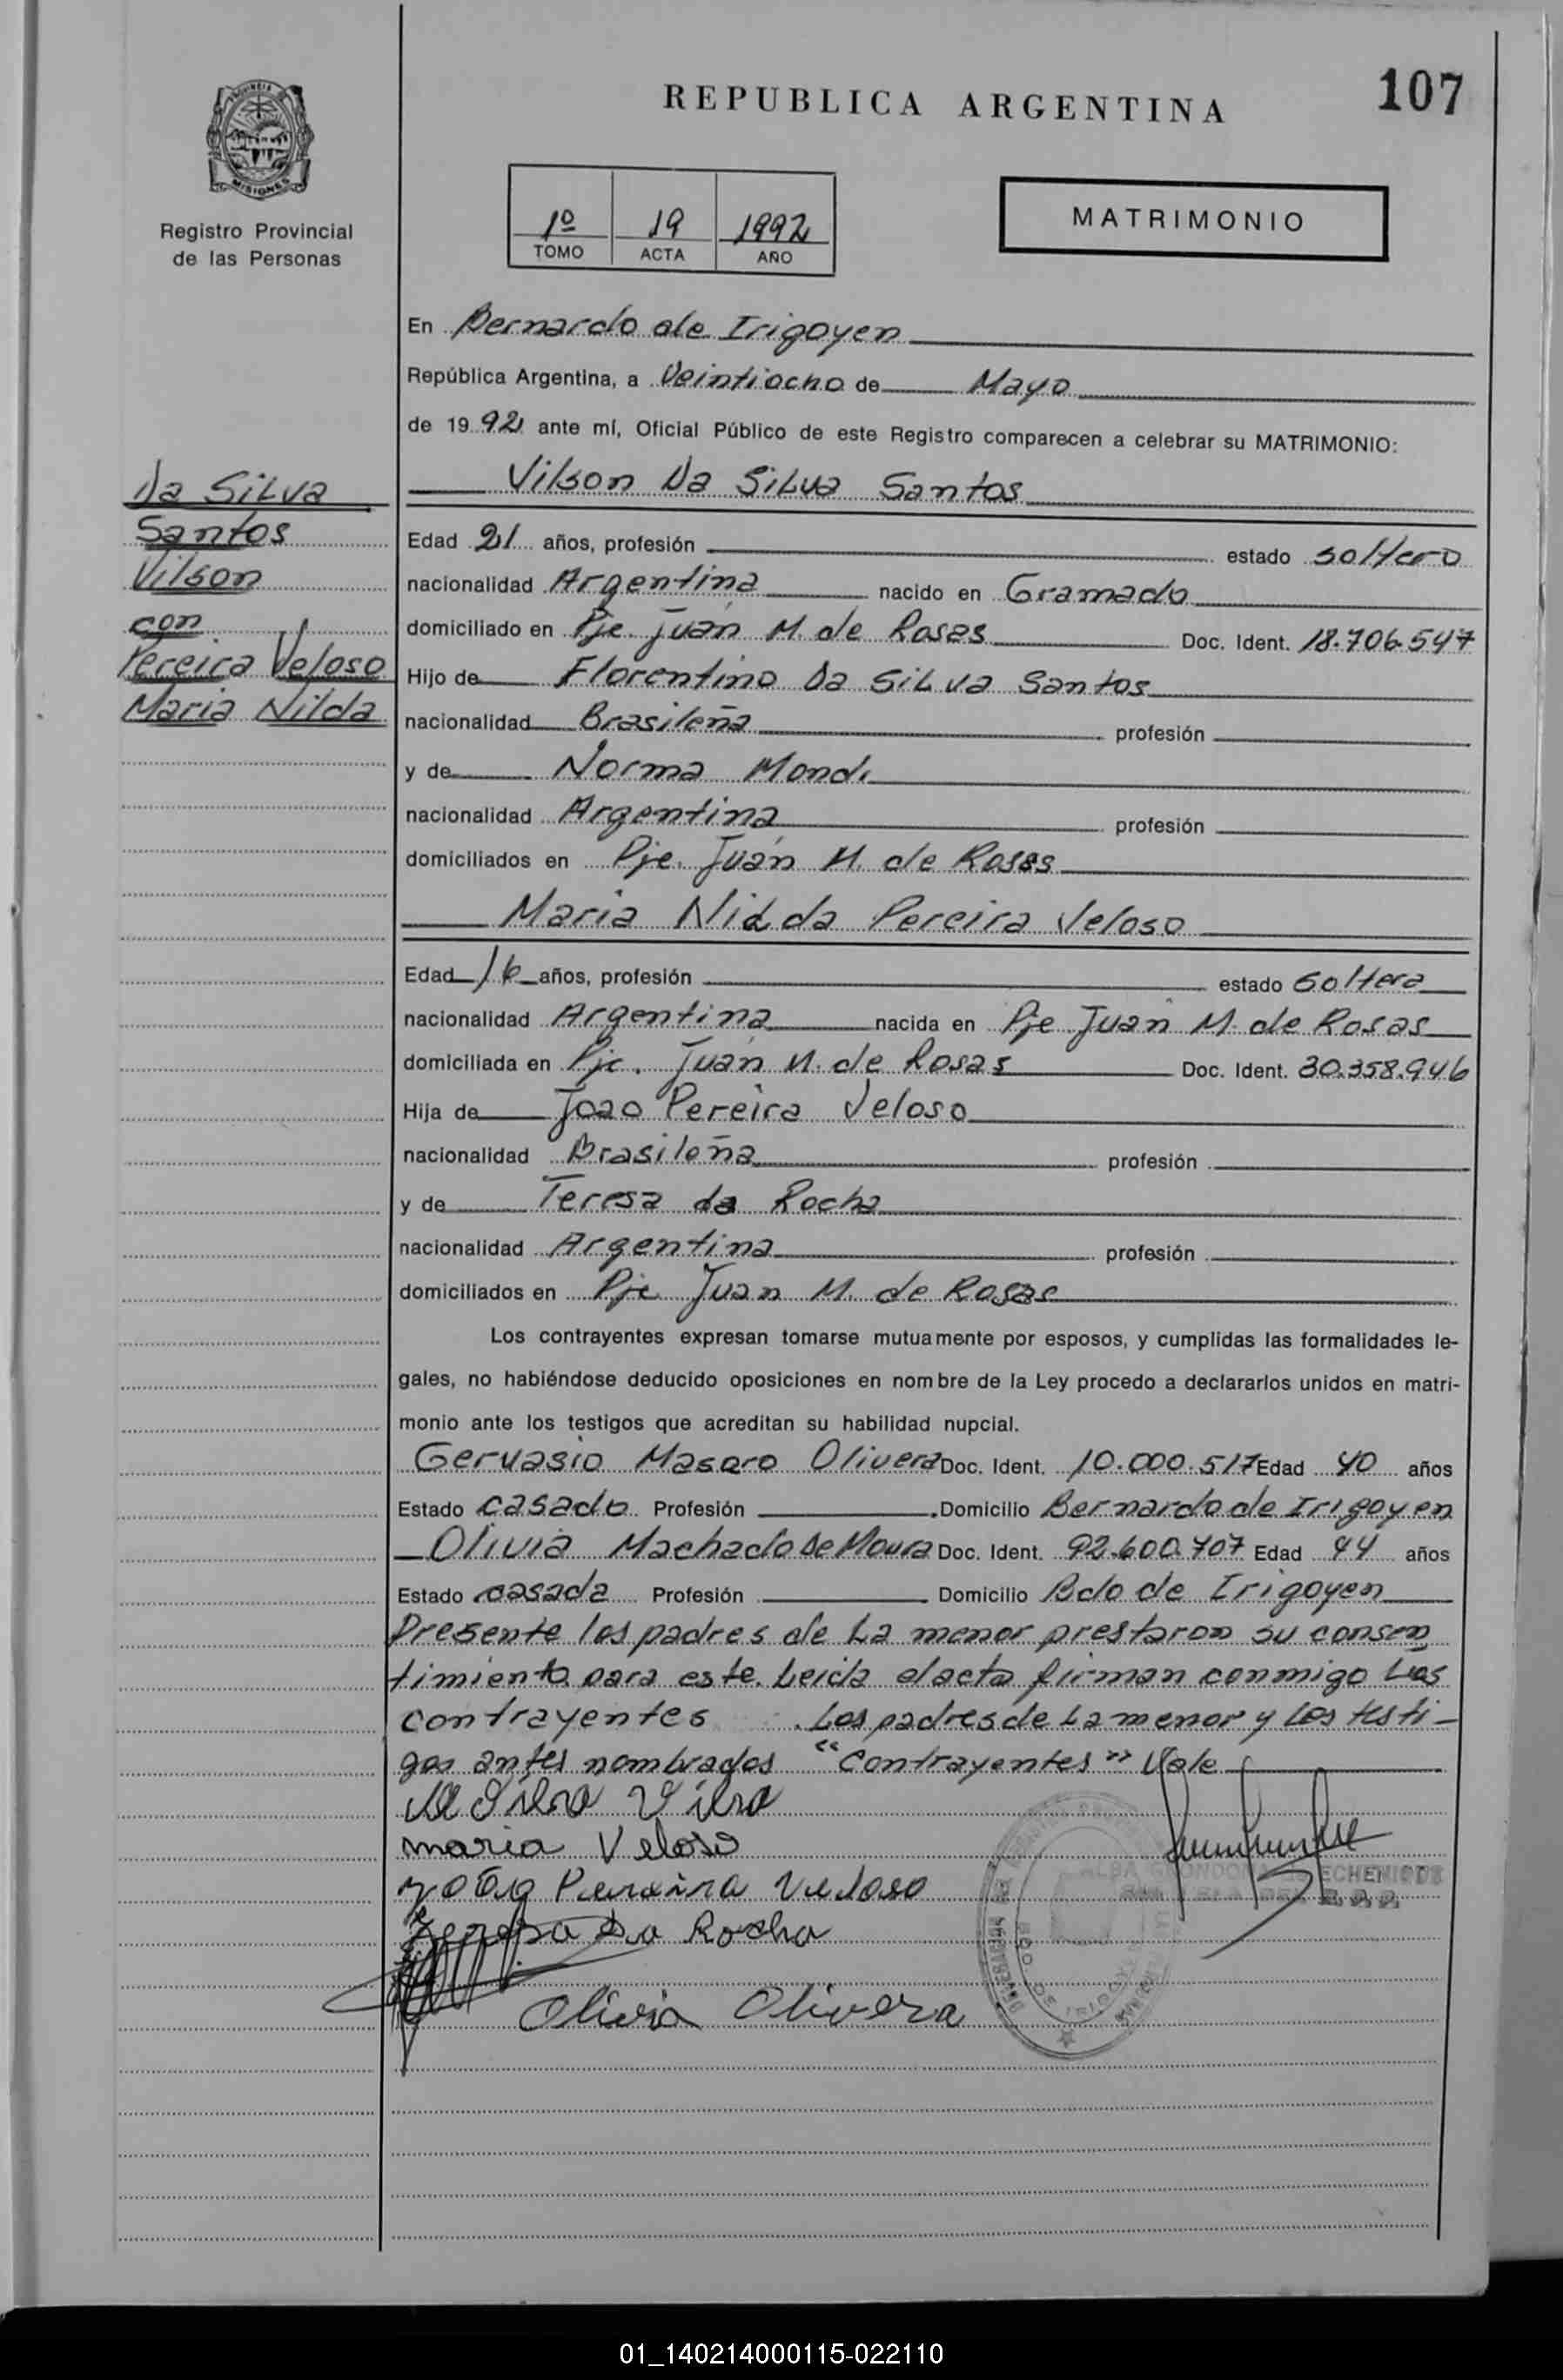 107
REPUBLICA ARGENTINA
PROVINCIA DE
MISIONES
Registro Provincial
de las Personas
1º 19 1992
TOMO ACTA AÑO
MATRIMONIO
En Bernardo de Irigoyen
República Argentina, a Veintiocho de Mayo
de 1992 ante mí, Oficial Público de este Registro comparecen a celebrar su MATRIMONIO:
Da Silva
Santos
Vilson
con
Pereira Veloso
Maria Nilda
Vilson Da Silva Santos
Edad 21 años, profesión estado soltero
nacionalidad Argentina nacido en Gramado
domiciliado en Pje. Juan M. de Rosas Doc. Ident. 18.706.547
Hijo de Florentino Da Silva Santos
nacionalidad Brasileña profesión
y de Norma Mondi
nacionalidad Argentina profesión
domiciliados en Pje. Juan M. de Rosas
Maria Nilda Pereira Veloso
Edad 16 años, profesión estado Soltera
nacionalidad Argentina nacida en Pje Juan M. de Rosas
domiciliada en Pje. Juan M. de Rosas Doc. Ident. 30.358.946
Hija de Joao Pereira Veloso
nacionalidad Brasileña profesión
y de Teresa da Rocha
nacionalidad Argentina profesión
domiciliados en Pje Juan M. de Rosas
Los contrayentes expresan tomarse mutuamente por esposos, y cumplidas las formalidades le-
gales, no habiéndose deducido oposiciones en nombre de la Ley procedo a declararlos unidos en matri-
monio ante los testigos que acreditan su habilidad nupcial.
Gervasio Masaro Olivera Doc. Ident. 10.000.517 Edad 40 años
Estado casado Profesión Domicilio Bernardo de Irigoyen
Olivia Machado De Moura Doc. Ident. 92.600.707 Edad 44 años
Estado casada Profesión Domicilio Bdo de Irigoyen
Presente los padres de La menor prestaron su consen
timiento para este. Leida el acta firman conmigo Los
contrayentes . Los padres de La menor y Los testi-
gos antes nombrados "Contrayentes" Vale
Da Silva Vilso
maria Veloso
João Pereira Veloso
Teresa Da Rocha
Olivia Olivera
BDO. DE IRIGOYEN
01_140214000115-022110